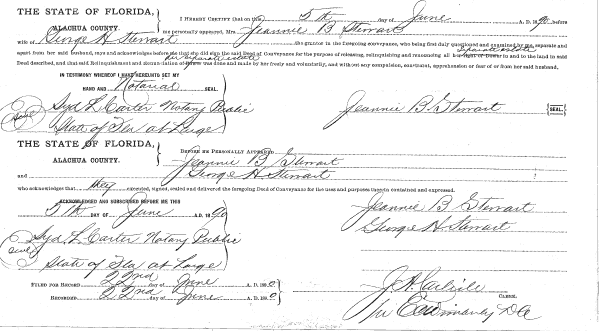 THE STATE OF FLORIDA,
ALACHUA COUNTY.
I HEREBY CERTIFY (that on this) 5th day of June A. D. 1890, before
me personally appeared, Mrs. Jeannie B Stewart
wife of George H Stewart the grantor in the foregoing conveyance, who being first duly questioned and examined by me separate and
apart from her said husband, says and acknowledges before me that she did sign the said Deed of Conveyance for the purpose of releasing, relinquishing and renouncing all her right of Dower in and to the land in said
her separate estate
Deed described, and that said Relinquishment and renunciation of Dower was done and made by her freely and voluntarily, and with out any compulsion, constraint, apprehension or fear of or from her said husband.
IN TESTIMONY WHEREOF I HAVE HEREUNTO SET MY
HAND AND Notarial SEAL.
Syd L Carter Notary Public
State of Fla at Large
Seal
Jeannie B. Stewart {SEAL.}
THE STATE OF FLORIDA,
ALACHUA COUNTY.
BEFORE ME PERSONALLY APPEARED
Jeannie B Stewart
and George H Stewart
who acknowledges that they executed, signed, sealed and delivered the foregoing Deed of Conveyance for the uses and purposes therein contained and expressed.
ACKNOWLEDGED AND SUBSCRIBED BEFORE ME THIS
5th DAY OF June A. D. 1890
Jeannie B Stewart
George H Stewart
Syd L Carter Notary Public
Seal
State of Fla at Large
FILED FOR RECORD 22nd day of June A. D. 1890
RECORDED 22nd day of June A. D. 1890
J. A. Carlisle
CLERK.
DC